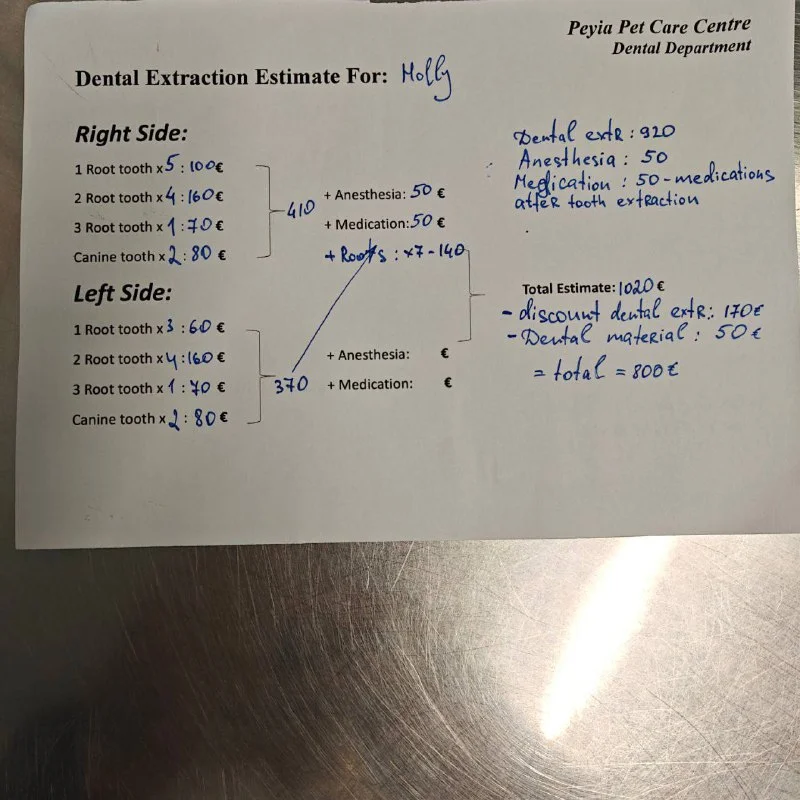 Peyia Pet Care Centre
Dental Department
Dental Extraction Estimate For: Molly
Right Side:
1 Root tooth x 5 : 100 €
2 Root tooth x 4 : 160 €
3 Root tooth x 1 : 70 €
Canine tooth x 2 : 80 €
410
+ Anesthesia: 50 €
+ Medication: 50 €
+ Roots : x7 - 140
Left Side:
1 Root tooth x 3 : 60 €
2 Root tooth x 4 : 160 €
3 Root tooth x 1 : 70 €
Canine tooth x 2 : 80 €
370
+ Anesthesia: €
+ Medication: €
Dental extR : 920
Anesthesia : 50
Medication : 50 - medications
atfeR tooth extRaction
Total Estimate: 1020 €
- discount dental extR.: 170€
- Dental material : 50€
= total = 800€